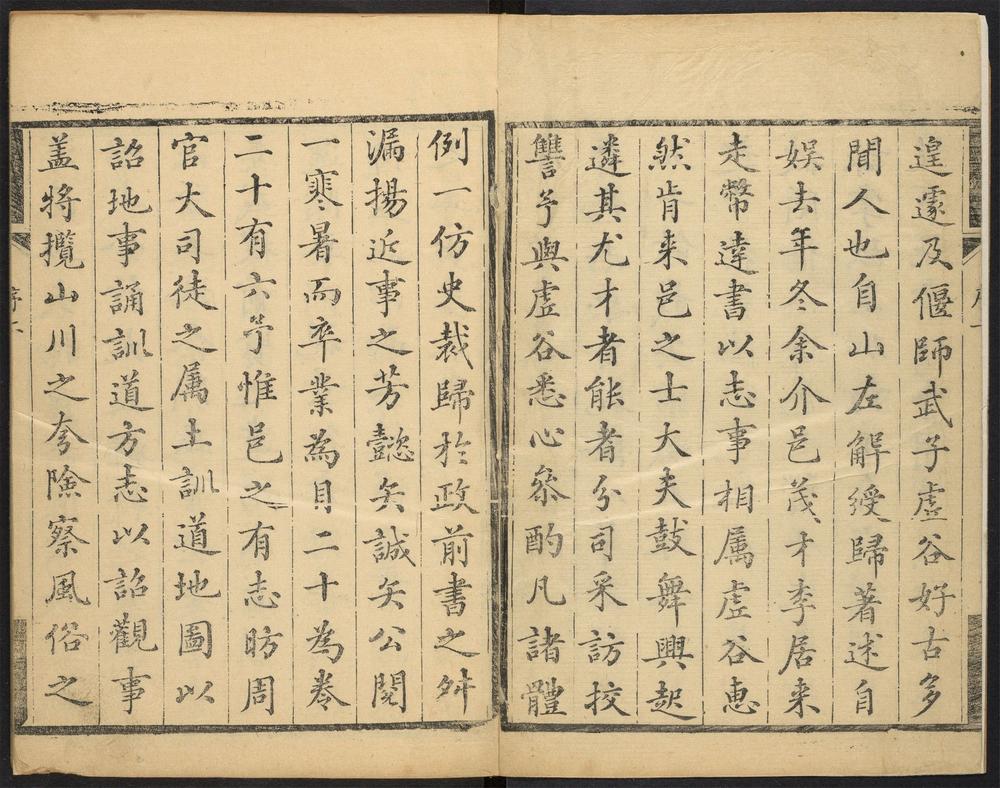 遑遽及偃師武子虛谷好古多
聞人也自山左解綬歸著述自
娱去年冬余介邑茂才李居来
走幣達書以志事相属虛谷惠
然肯来邑之士大夫鼓舞興起
遴其尤才者能者分司采訪挍
讐予與虛谷悉心叅酌凡諸體
例一仿史裁歸扵政前書之舛
漏揚近事之芳懿矣誠矣公閱
一寒暑而卒業為目二十為卷
二十有六予惟邑之有志昉周
官大司徒之属土訓道地圖以
詔地事誦訓道方志以詔觀事
盖将攬山川之夸險察風俗之